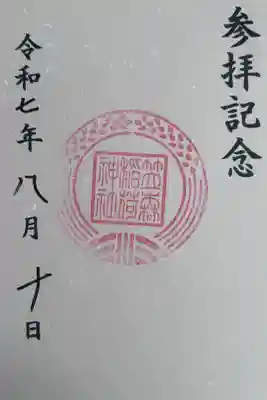 参拝記念
笠森
稲荷
神社
令和七年八月十日